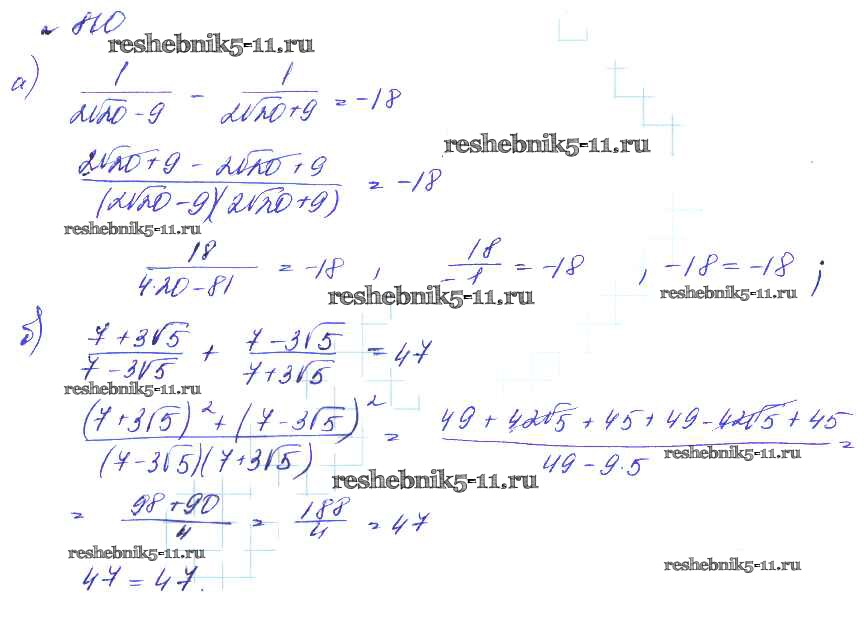 № 810
reshebnik5-11.ru
а) 1/(2√20 - 9) - 1/(2√20 + 9) = -18
reshebnik5-11.ru
(2√20 + 9 - 2√20 + 9)/((2√20 - 9)(2√20 + 9)) = -18
reshebnik5-11.ru
18/(4·20 - 81) = -18 , 18/-1 = -18 , -18 = -18 ;
reshebnik5-11.ru reshebnik5-11.ru
б) (7 + 3√5)/(7 - 3√5) + (7 - 3√5)/(7 + 3√5) = 47
reshebnik5-11.ru
((7 + 3√5)² + (7 - 3√5)²)/((7 - 3√5)(7 + 3√5)) = (49 + 42√5 + 45 + 49 - 42√5 + 45)/(49 - 9·5) =
reshebnik5-11.ru
reshebnik5-11.ru
= (98 + 90)/4 = 188/4 = 47
reshebnik5-11.ru
reshebnik5-11.ru
47 = 47.